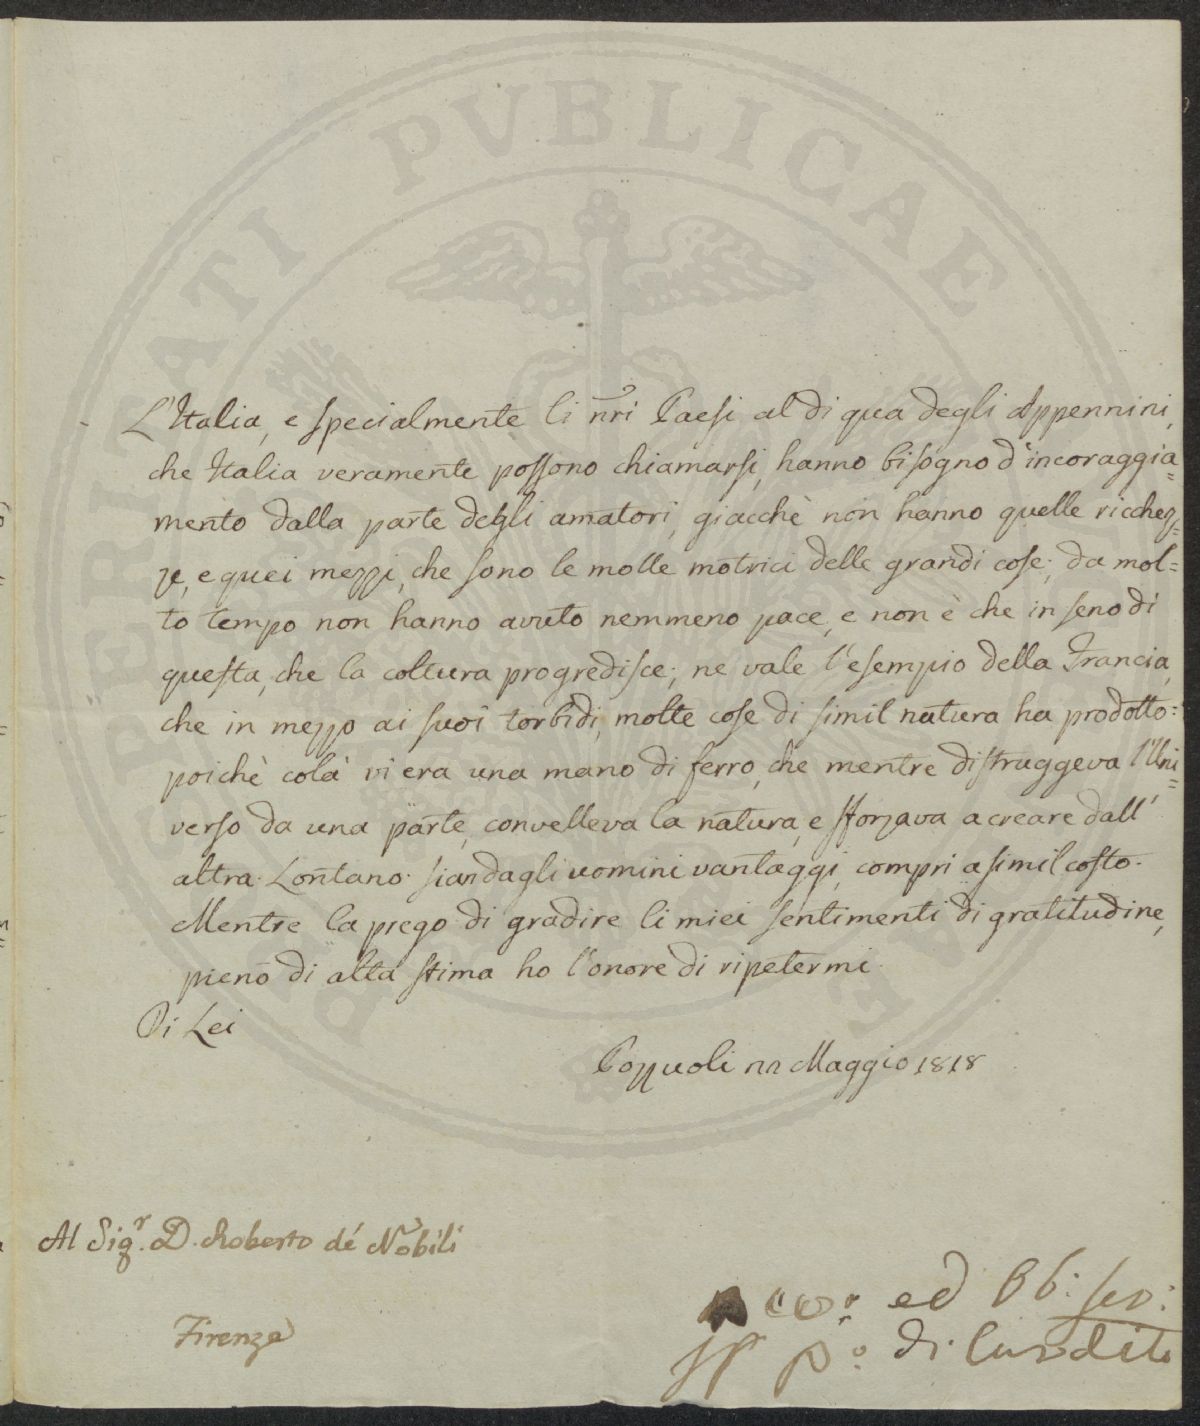 L'Italia, e specialmente li nr̃i Paesi al di qua degli Appennini,
che Italia veramente possono chiamarsi, hanno bisogno d'incoraggia=
mento dalla parte degli amatori, giacchè non hanno quelle ricchez=
ze, e quei mezzi, che sono le molle motrici delle grandi cose; da mol=
to tempo non hanno avuto nemmeno pace, e non è che in seno di
questa, che la coltura progredisce; ne vale l'esempio della Francia,
che in mezzo ai suoi torbidi, molte cose di simil natura ha prodotto:
poichè colà vi era una mano di ferro, che mentre distruggeva l'Uni=
verso da una parte, convelleva la natura, e sforzava a creare dall'
altra. Lontano sian dagli uomini vantaggi, compri a simil costo.
Mentre la prego di gradire li miei sentimenti di gratitudine,
pieno di alta stima ho l'onore di ripetermi
Di Lei
Pozzuoli Maggio 1818
Al Sig.r D. Roberto dé Nobili
Firenze
ed Ob: ser:
di
PVBLICAE